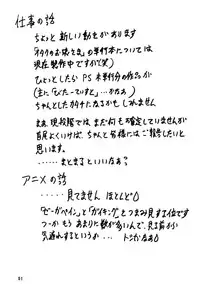 仕事の話
ちょっと 新しい動きがあります
「オタクのお嫁さま」の単行本については
現在製作中ですが(笑)
ひょっとしたら PS 未単行分の作品が
(主に「びたーていすと」…かなぁ)
ちゃんとしたカタチになるかもしれません
まぁ 現段階では まだ何も確定していませんが
首尾よくいけば、ちゃんと皆様にはご報告したいと
思います。
……まとまるといいなぁ?
アニメの話
……見てません ほとんど
「ゼーガペイン」と「ガイキング」をつまみ見する位です
つーか もうあまりに数が多くて、見る前から
気遅れするというか… トシかなぁ
81